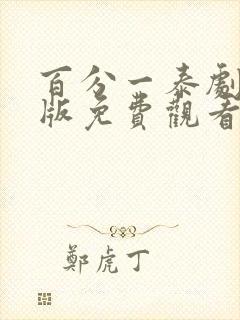 百分一泰劇
版免費觀看
鄭虎丁